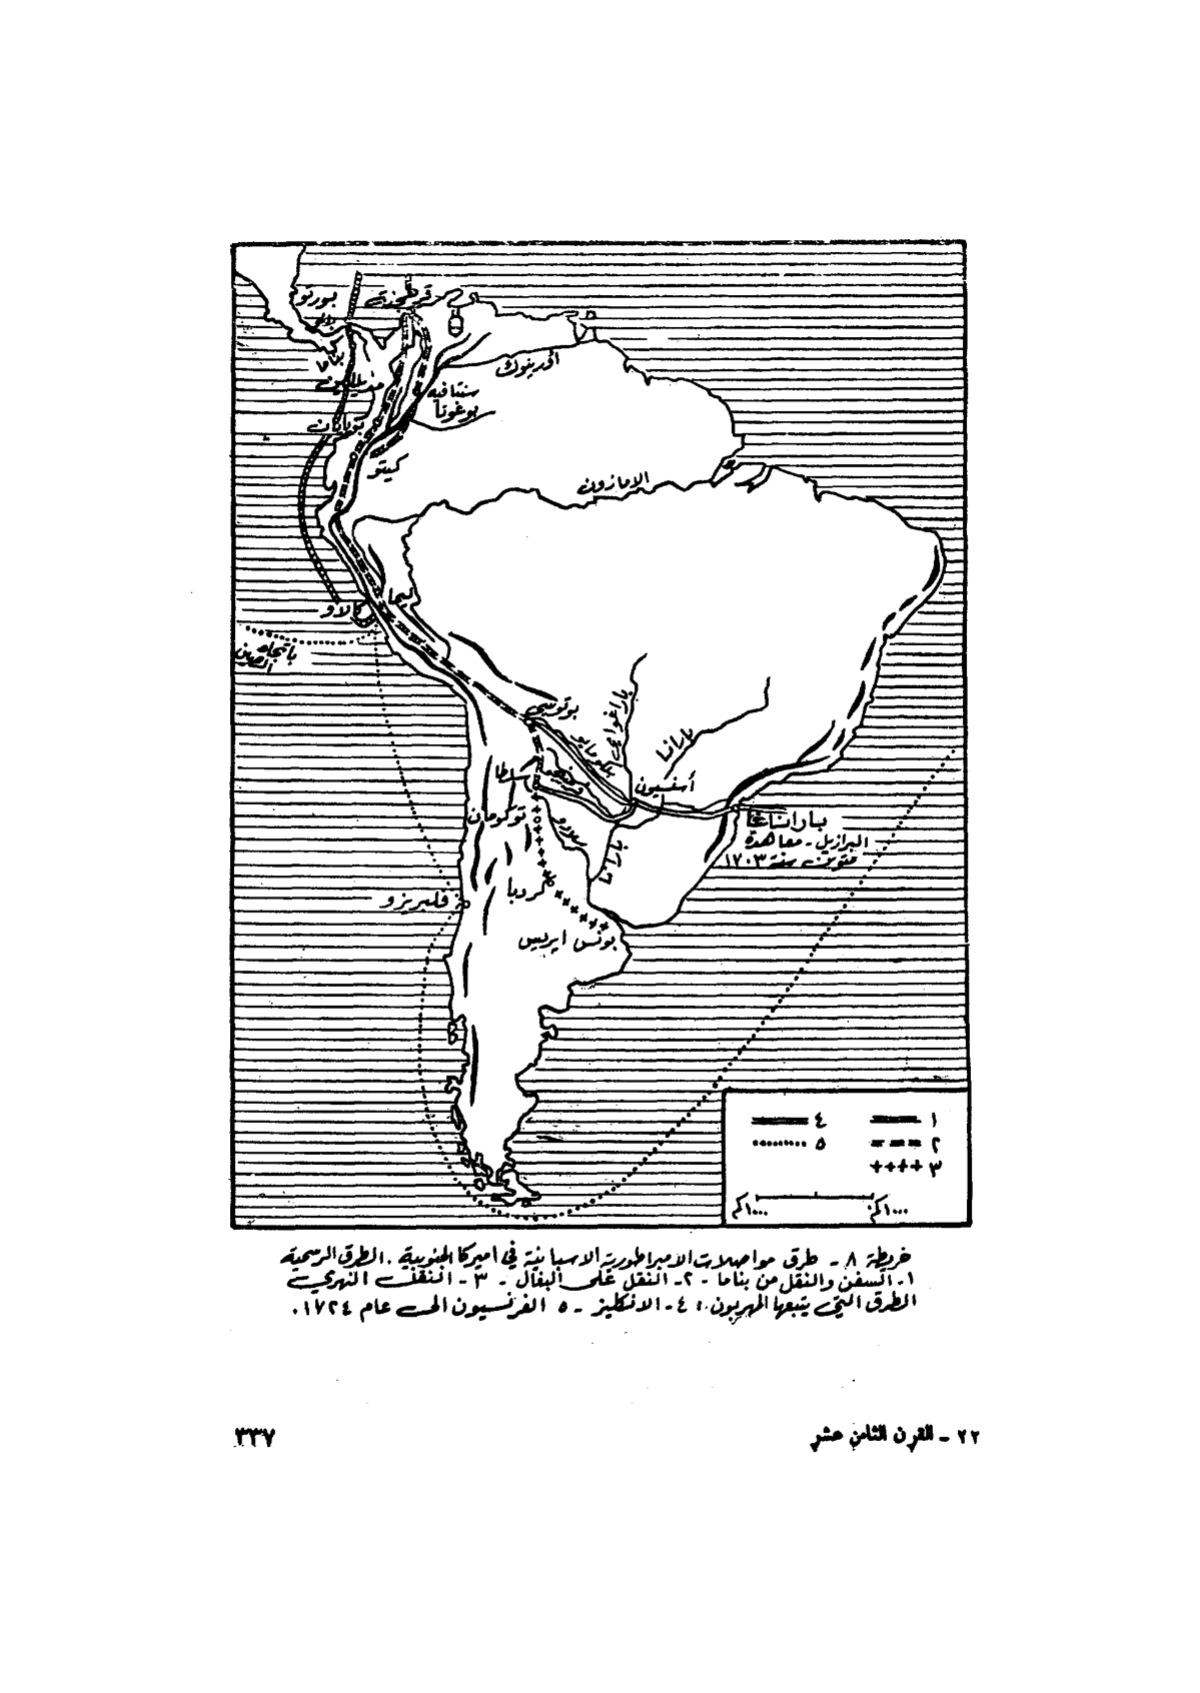 بورتو
بللو
قرطجنة
بناما
مديللين
أورينوك
سنتافيه
بوغوتا
بوبايان
كيتو
الامازون
ليما
كالاو
باتجاه
الصين
بوتوسي
باراغواي
بارانا
بلكومايو
سلطا
أسنسيون
توكومان
سلادو
باراناغا
البرازيل - معاهدة
متوين سنة ١٧٠٣
بارانا
كردبا
فلبريزو
بونس ايريس
١
٤
٢
٥
٣
١٠٠٠كم
١٠٠٠كم
خريطة ٨ - طرق مواصلات الامبراطورية الاسبانية في اميركا الجنوبية . الطرق الرسمية
١- السفن والنقل من بناما - ٢- النقل على البغال - ٣ - النقل النهري
الطرق التي يتبعها المهربون : ٤ - الانكليز - ٥ الفرنسيون الى عام ١٧٢٤ .
٢٢ - القرن الثامن عشر
٣٣٧